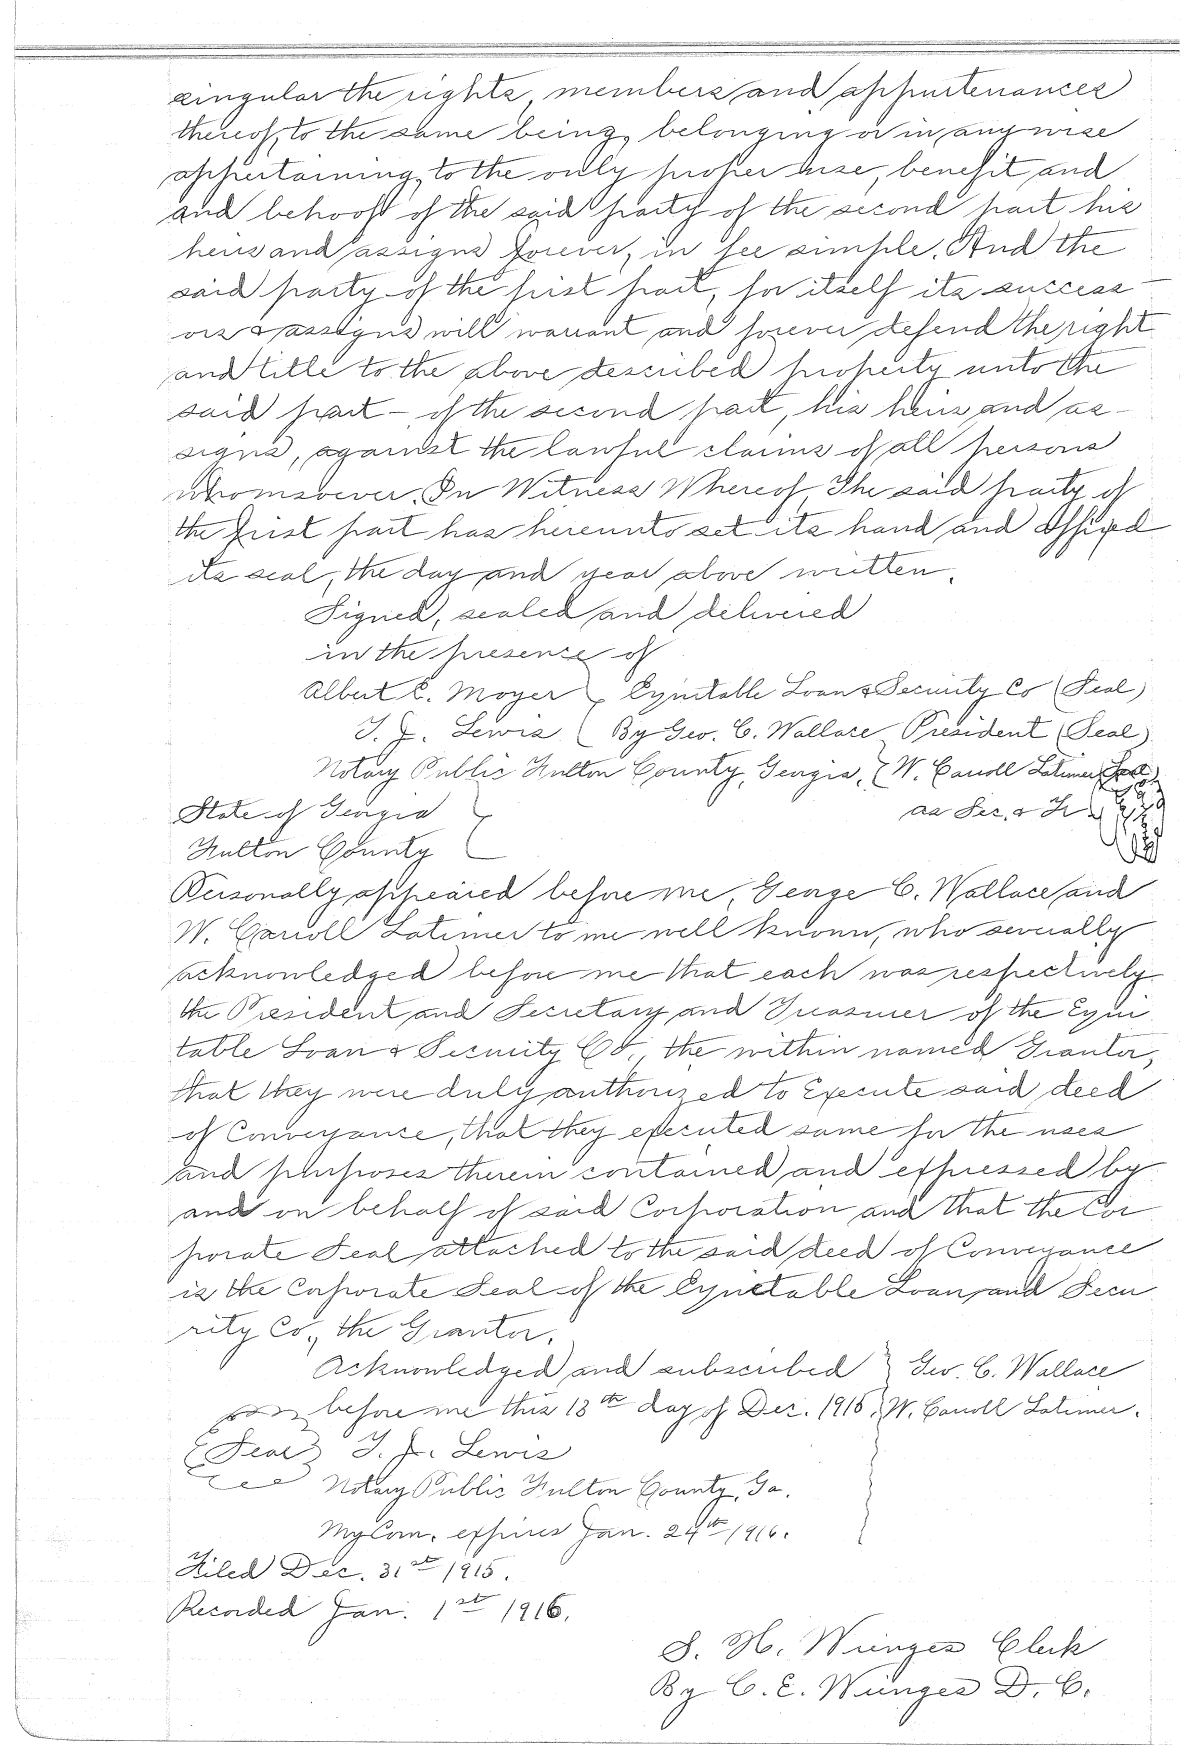 singular the rights, members and appurtenances
thereof, to the same being, belonging or in any wise
appertaining, to the only proper use, benefit and
and behoof of the said party of the second part his
heirs and assigns forever, in fee simple. And the
said party of the first part, for itself its success-
ors & assigns will warrant and forever defend the right
and title to the above described property unto the
said part- of the second part, his heirs and as-
signs, against the lawful claims of all persons
whomsoever. In Witness Whereof, The said party of
the first part has hereunto set its hand and affixed
its seal, the day and year above written.
Signed, sealed and delivered
in the presence of
Albert E. Moyer } Equitable Loan & Security Co (Seal)
T. J. Lewis ( By Geo. C. Wallace President (Seal)
Notary Public Fulton County, Georgia, { W. Carroll Latimer Seal
State of Georgia } as Sec. & Tr
Fulton County
Personally appeared before me, George C. Wallace and
W. Carroll Latimer to me well known, who severally
acknowledged before me that each was respectively
the President and Secretary and Treasurer of the Equi
table Loan & Security Co., the within named Grantor,
that they were duly authorized to Execute said deed
of Conveyance, that they executed same for the uses
and purposes therein contained and expressed by
and on behalf of said Corporation and that the Cor
porate Seal attached to the said deed of Conveyance
is the Corporate Seal of the Equitable Loan and Secu
rity Co., the Grantor.
Acknowledged and subscribed } Geo. C. Wallace
before me this 18th day of Dec. 1915, W. Carroll Latimer.
(Seal) T. J. Lewis
Notary Public Fulton County, Ga.
My Com. expires Jan. 24th 1916.
Filed Dec. 31st 1915.
Recorded Jan. 1st 1916.
S. H. Wienges Clerk
By C. E. Wienges D. C.